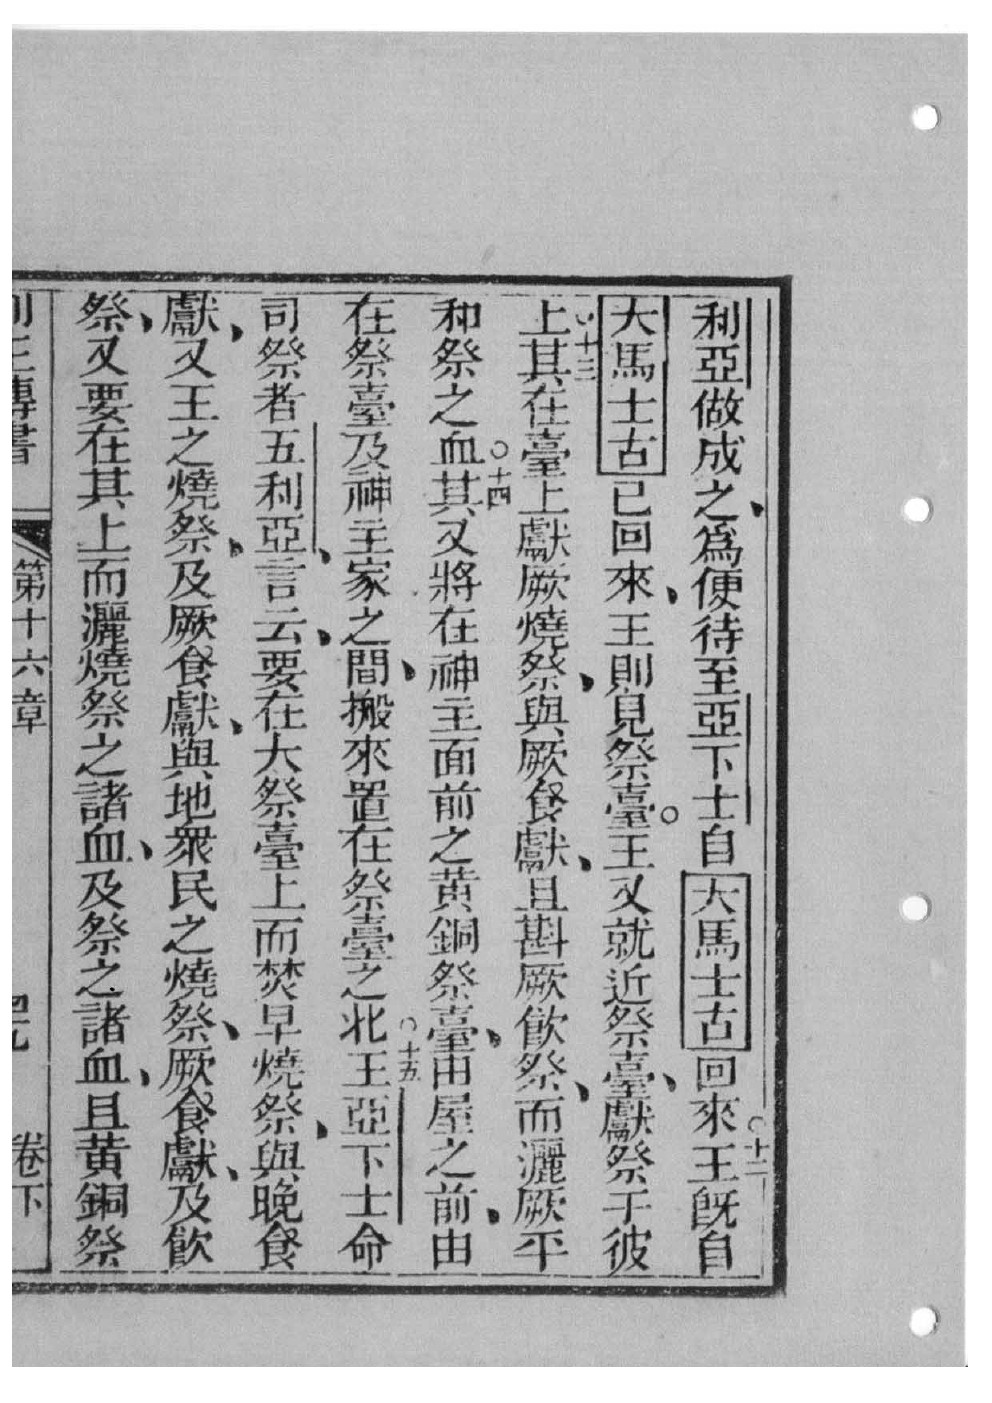 利亞做成之、爲便待至亞下士自大馬士古回來○十二王旣自
大馬士古已回來、王則見祭臺。王又就近祭臺、獻祭于彼
上○十三其在臺上獻厥燒祭、與厥食獻、且斟厥飮祭、而灑厥平
和祭之血○十四其又將在神主面前之黃銅祭臺、由屋之前、由
在祭臺及神主家之間、搬來置在祭臺之北○十五王亞下士命
司祭者五利亞、言云、要在大祭臺上而焚早燒祭、與晚食
獻、又王之燒祭、及厥食獻、與地衆民之燒祭、厥食獻、及飮
祭、又要在其上而灑燒祭之諸血、及祭之諸血、且黃銅祭
列王傳書 第十六章 卷下